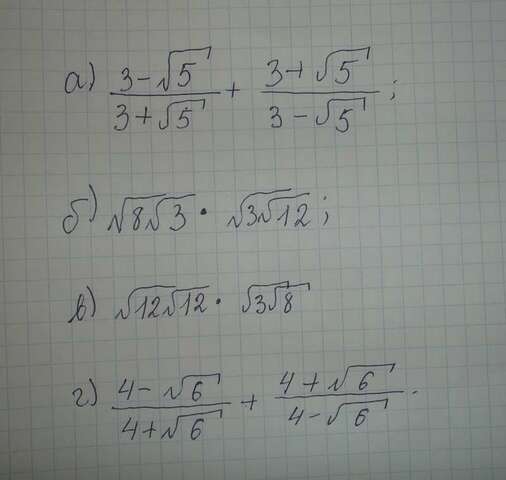 а) (3-√5)/(3+√5) + (3+√5)/(3-√5);
б) √8√3 · √3√12;
в) √12√12 · √3√8
г) (4-√6)/(4+√6) + (4+√6)/(4-√6).